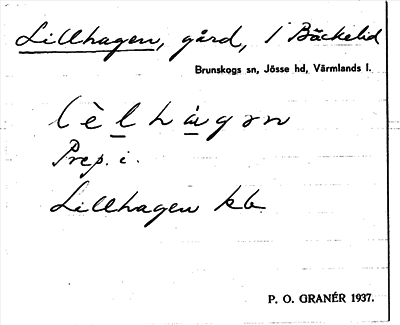 Lillhagen, gård, i Bäckelid
Brunskogs sn, Jösse hd, Värmlands l.
Prep. i.
Lillhagen kb
P. O. GRANÉR 1937.